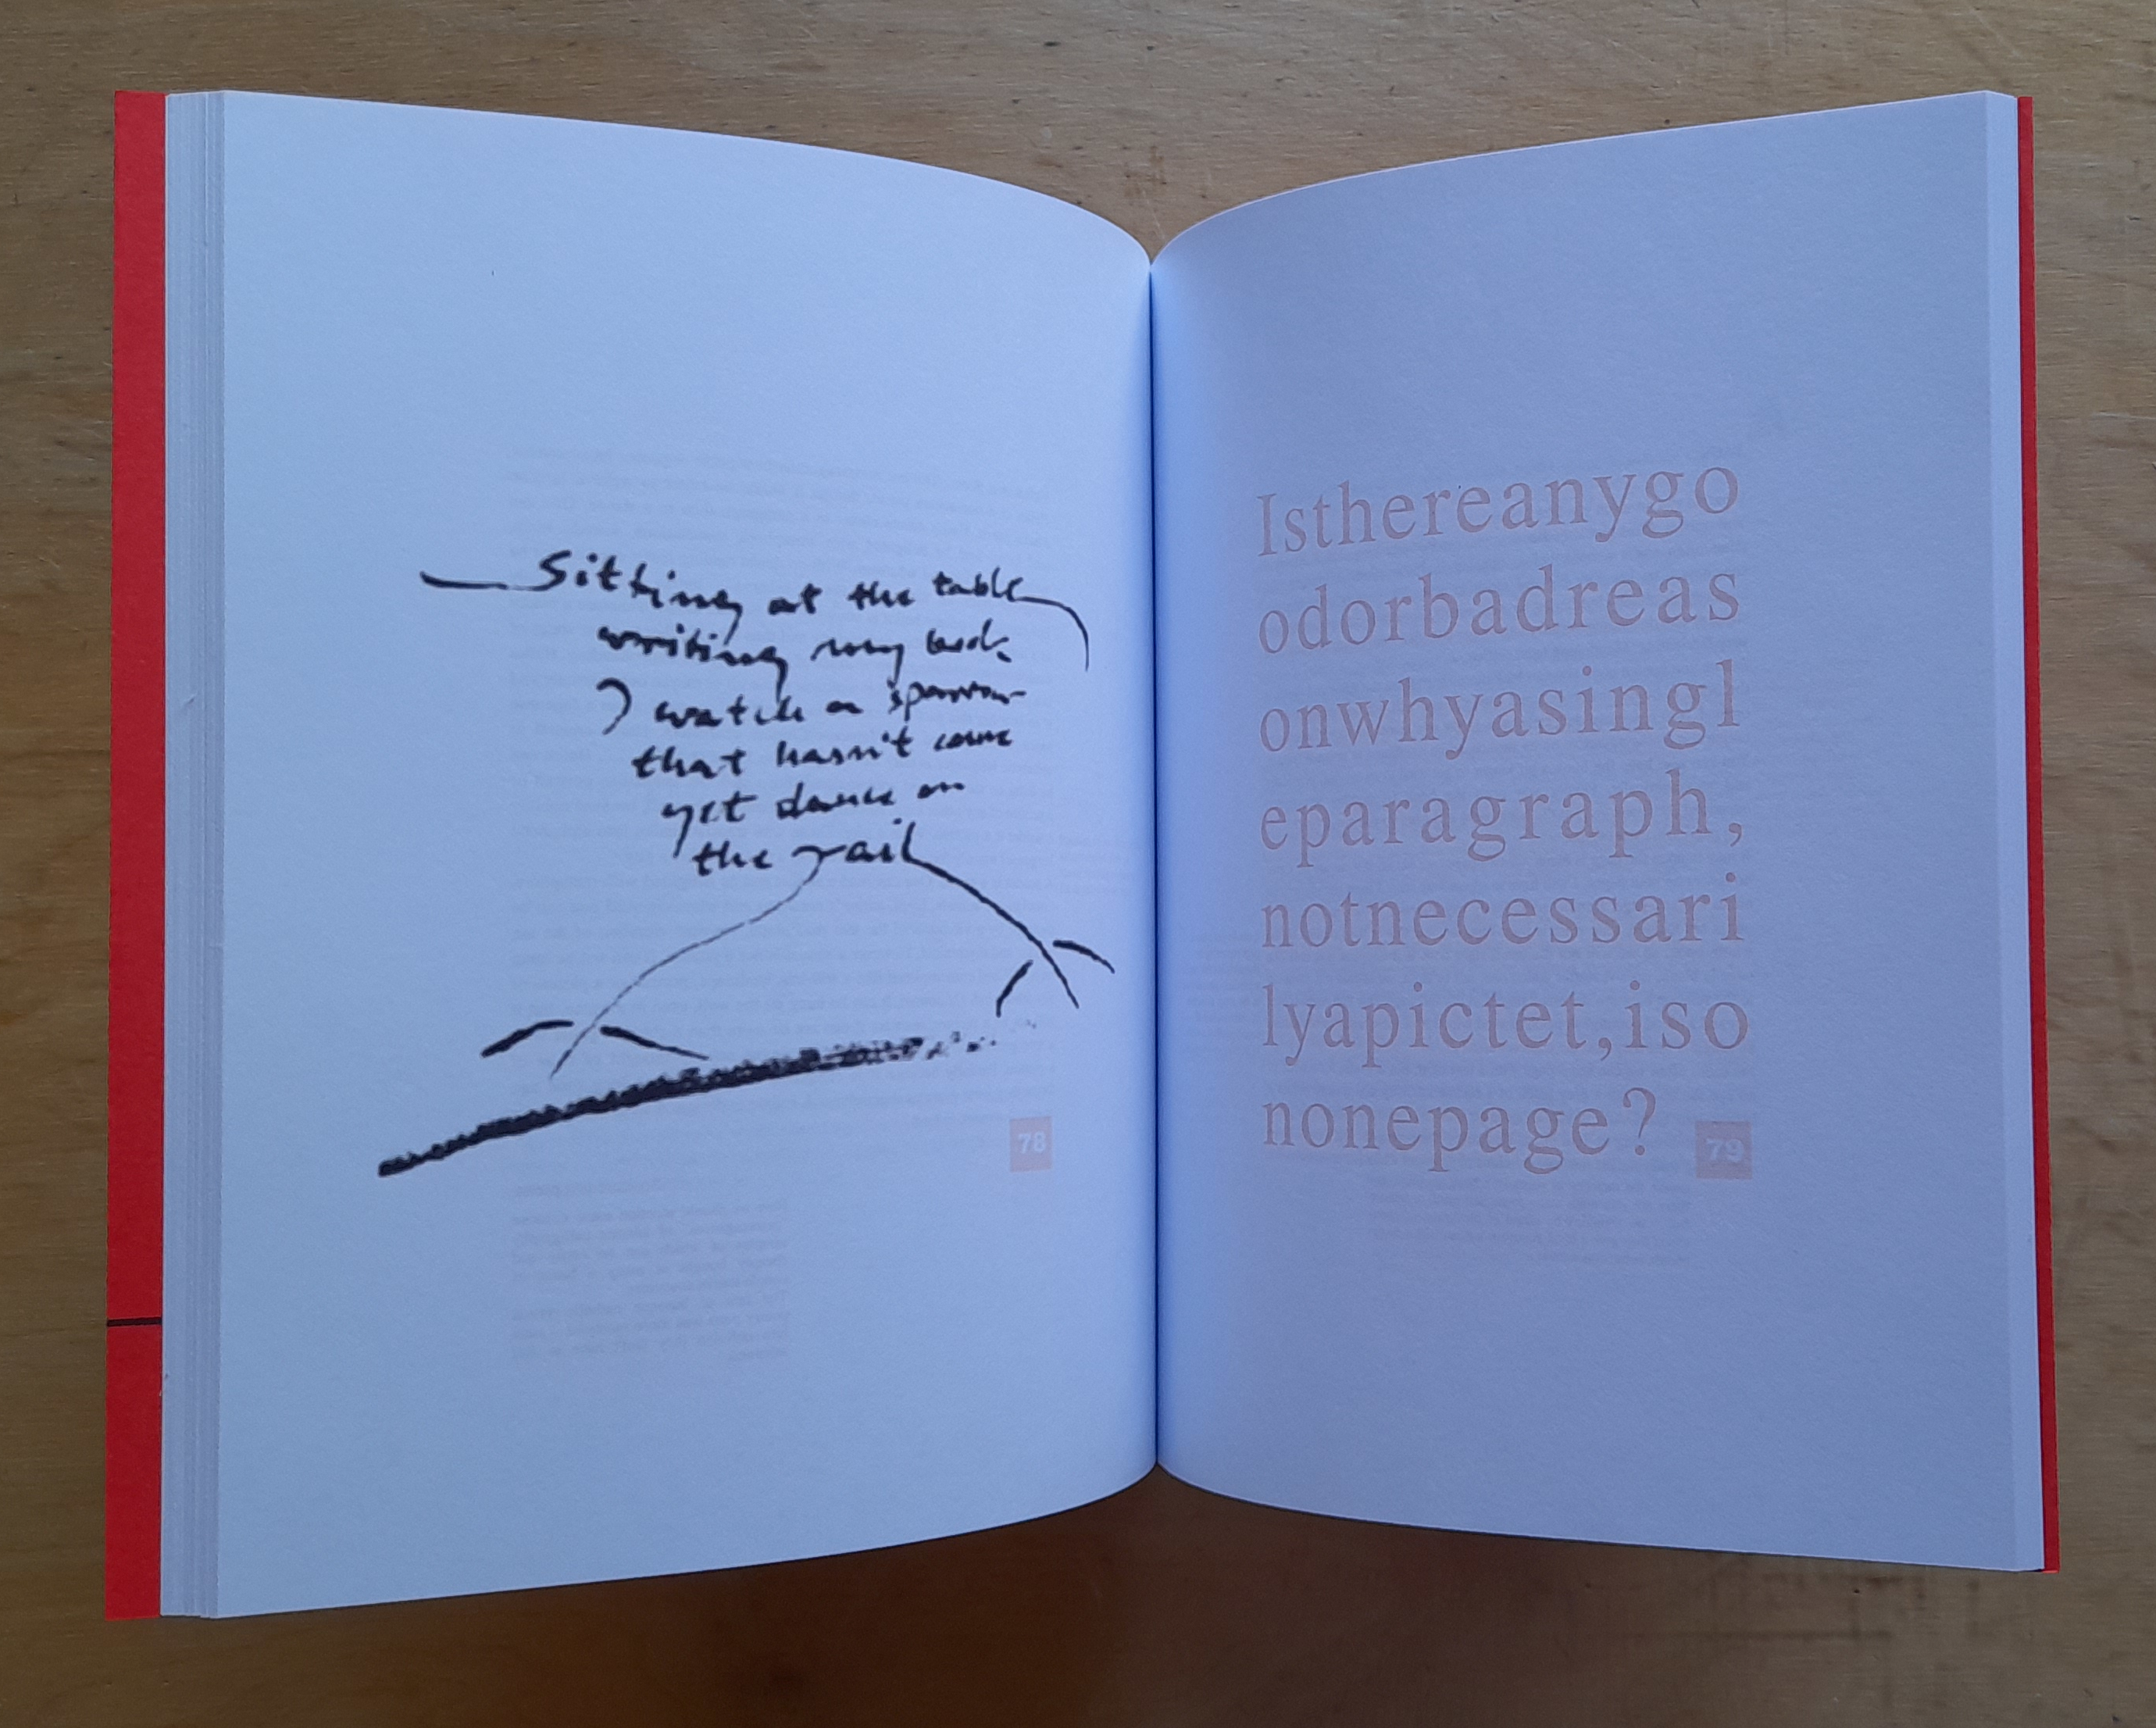 Sitting at the table
writing my book
I watch a sparrow
that hasn't come
yet dance on
the rail
78
Isthereanygo
odorbadreas
onwhyasingl
eparagraph,
notnecessari
lyapictet,iso
nonepage?
79